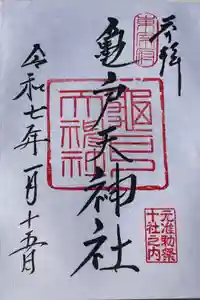 奉拝
東宰府
亀戸天神社
亀戸天神社
元准勅祭
十社之内
令和七年一月十五日